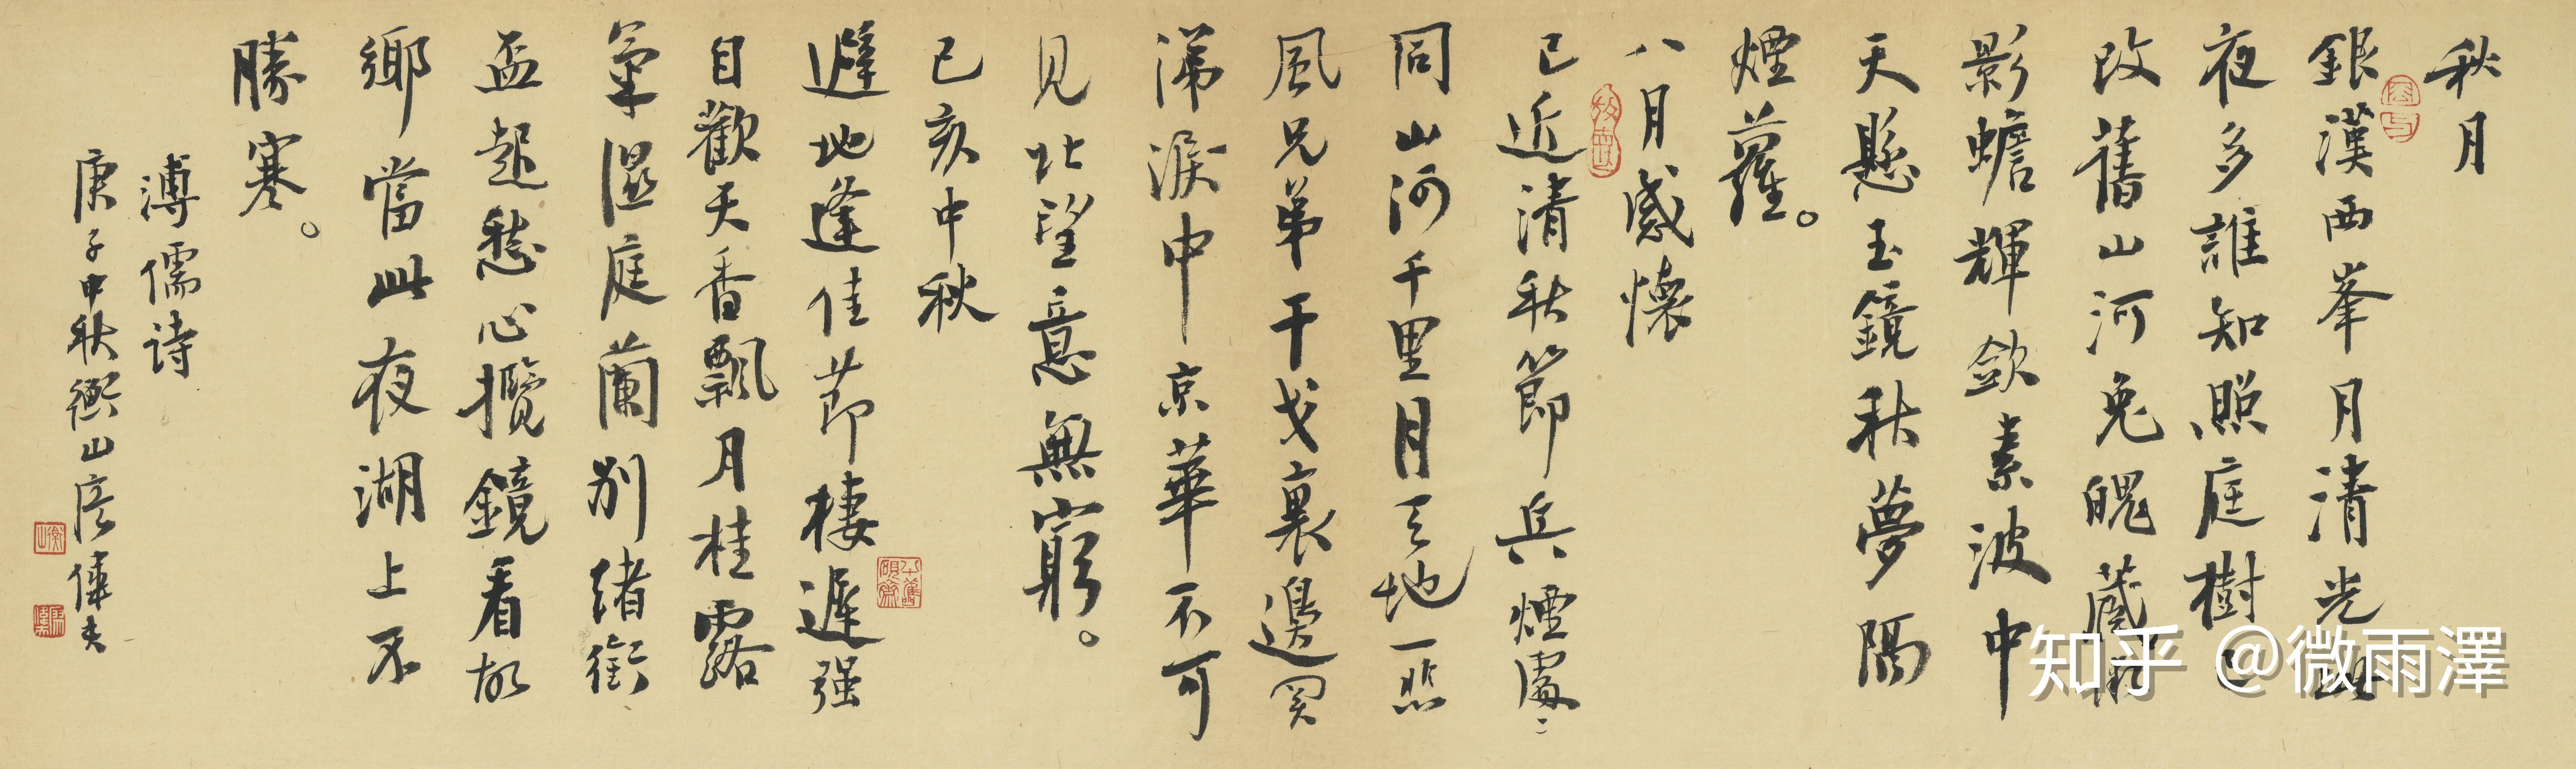 秋月
銀漢西峯月清光此
夜多誰知照庭樹已
改舊山河兔魄藏
影蟾輝斂素波中
天懸玉鏡秋夢隔
煙蘿。
八月感懷
已近清秋節兵煙處〻
同山河千里月天地一悲
風兄弟干戈裏邊関
涕淚中京華不可
見北望意無窮。
已亥中秋
避地逢佳节棲遲强
自歡天香飄月桂露
氣濕庭蘭別緒銜
盃起愁心攬鏡看故
鄉當此夜湖上不
勝寒。
溥儒诗
庚子中秋衡山
知乎 @微雨澤